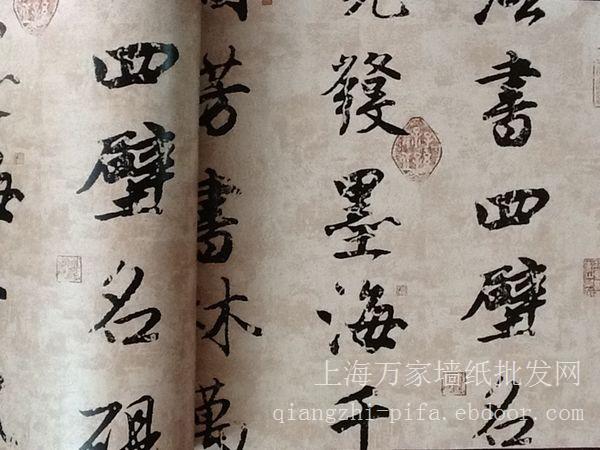 書四壁名
發墨海千
芳書沐萬
四壁名硯
上海万家墙纸批发网
qiangzhi-pifa.ebdoor.com